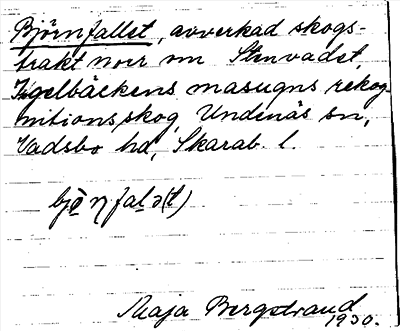 Björnfallet, avverkad skogs-
trakt norr om Stenvadet,
Igelbäckens masugns rekog
nitionsskog, Undenäs sn,
Vadsbo hd, Skarab. l.
Maja Bergstrand
1930.